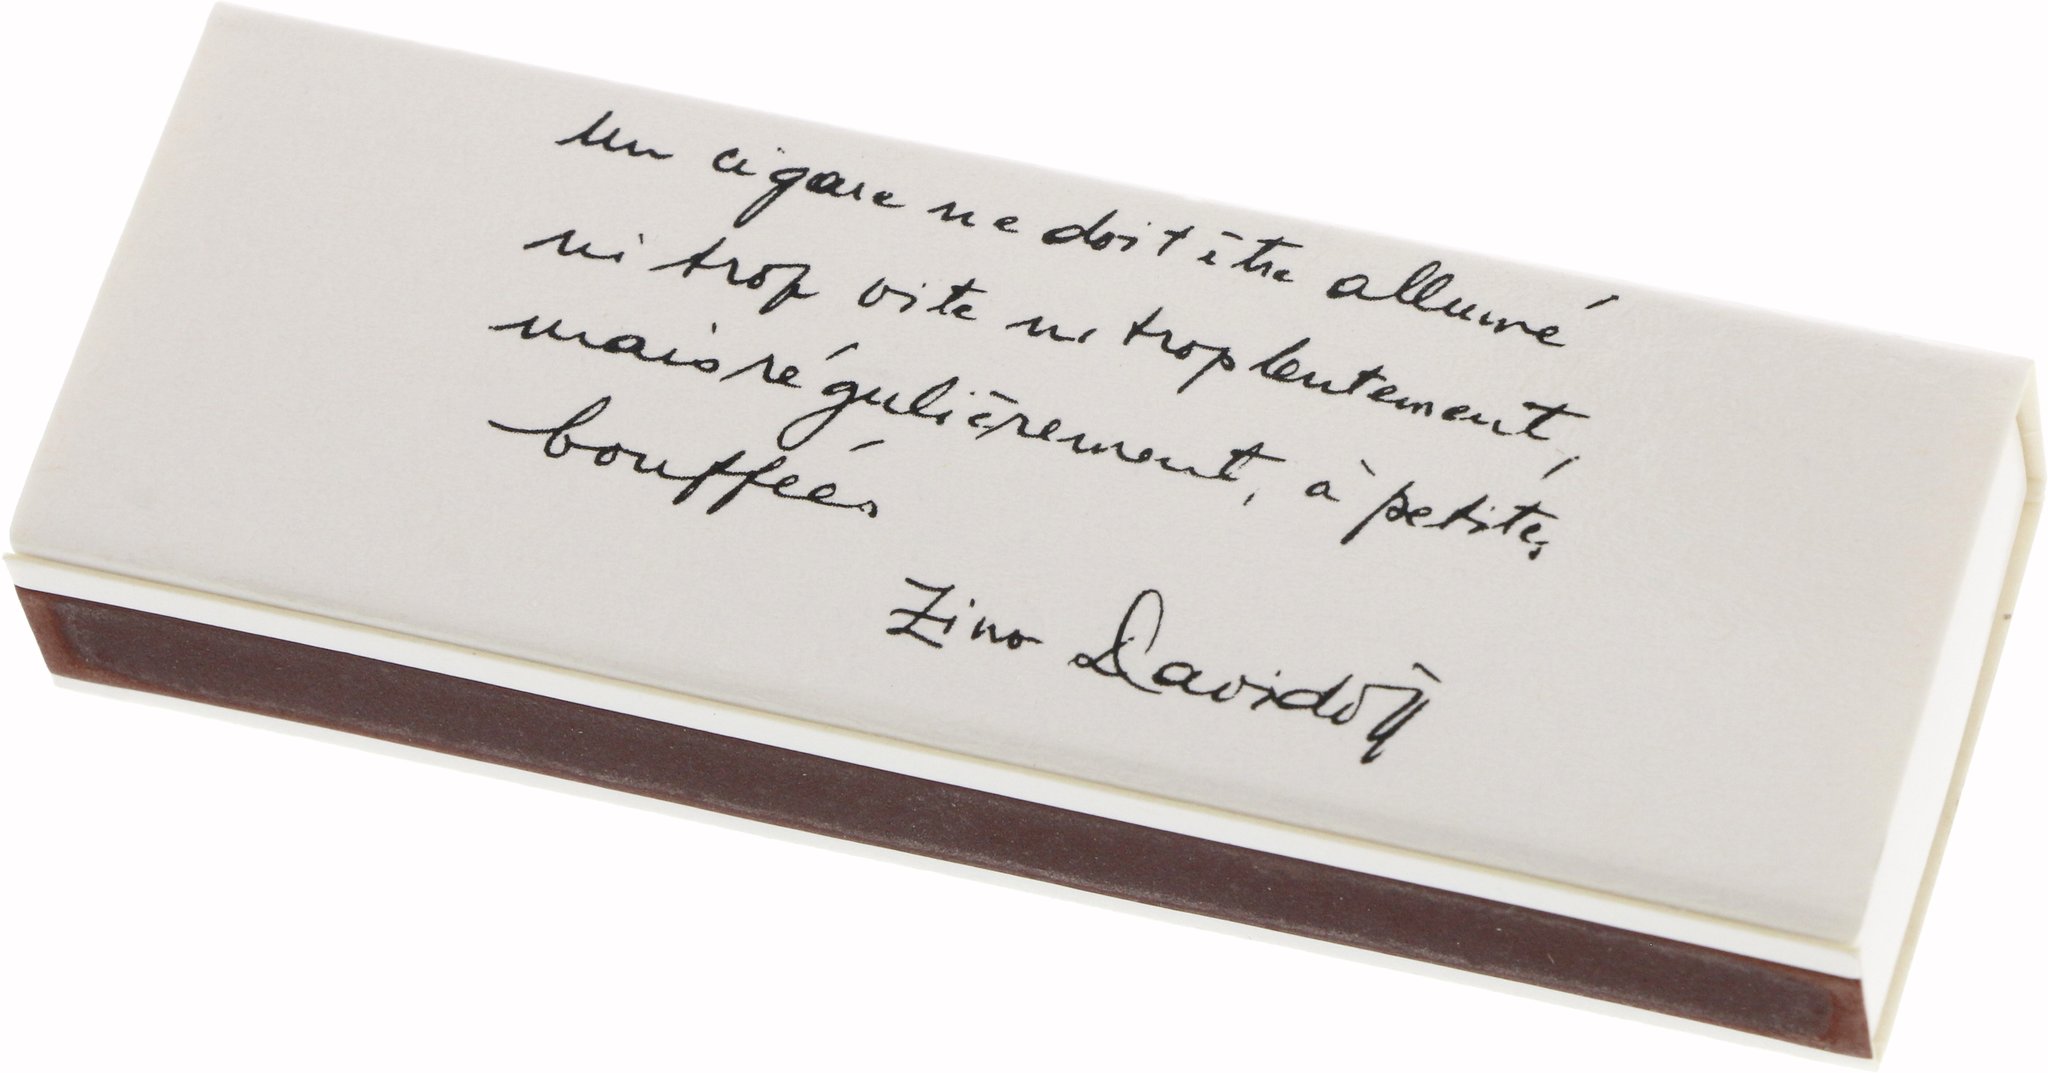 Un cigare ne doit être allumé
ni trop vite ni trop lentement,
mais régulièrement, à petites
bouffées
Zino Davidoff